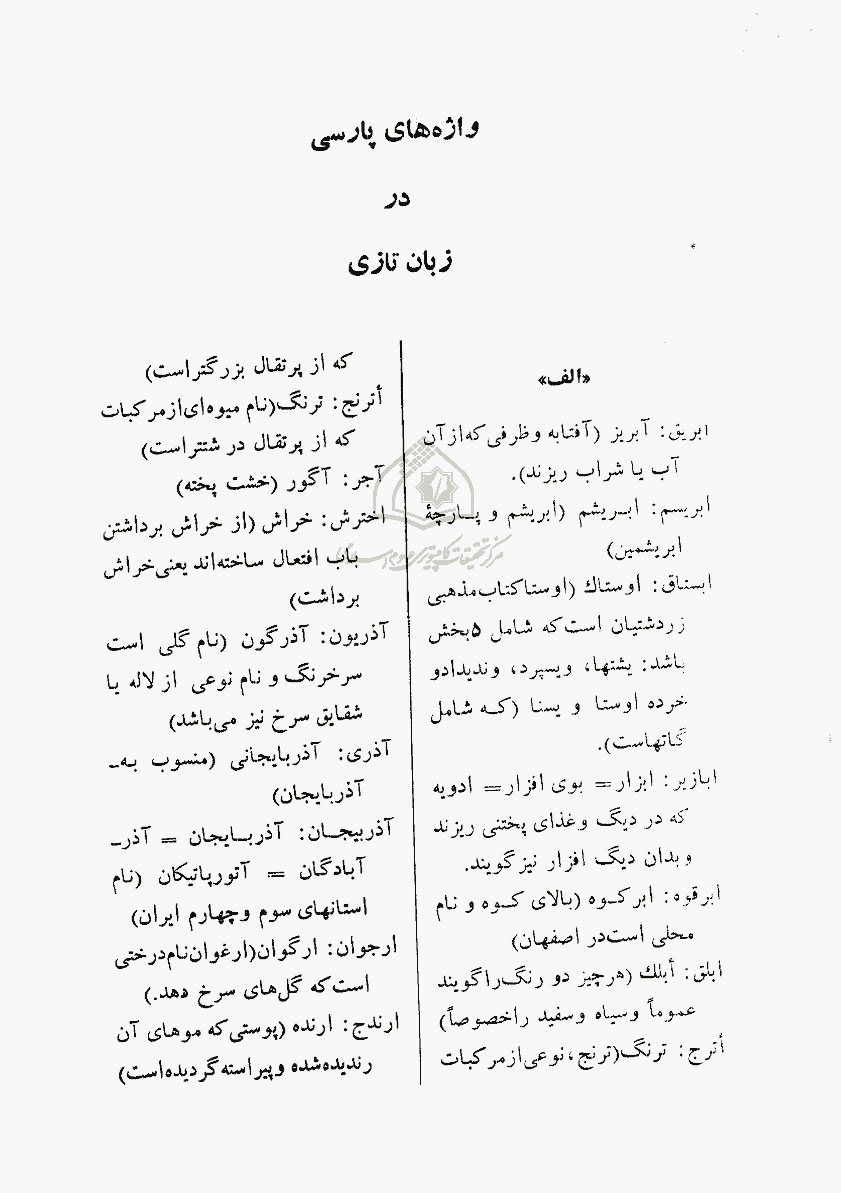 واژه‌های پارسی
در
زبان تازی
«الف»
ابریق: آبریز (آفتابه وظرفی که از آن
آب یا شراب ریزند).
ابریسم: ابـریشم (ابریشم و پـارچهٔ
ابریشمین)
ابستاق: اوستاك (اوستاکتاب مذهبی
زردشتیان است که شامل ۵بخش
باشد: یشتها، ویسپرد، وندیدادو
خرده اوستا و یسنا (کـه شامل
گاتهاست).
ابازیر: ابزار= بوی افزار= ادویه
که در دیگ وغذای پختنی ریزند
وبدان دیگ افزار نیزگویند.
ابرقوه: ابرکـوه (بالای کـوه و نام
محلی است در اصفهان)
ابلق: أبلك (هرچیز دو رنگ راگویند
عموماً وسیاه وسفید راخصوصاً)
أترج: ترنگ(ترنج، نوعی ازمرکبات
که از پرتقال بزرگتراست)
أترنج: ترنگ(نام میوه‌ای ازمرکبات
که از پرتقال درشتتراست)
آجر: آگور (خشت پخته)
اخترش: خراش (از خراش برداشتن
باب افتعال ساخته‌اند یعنی‌خراش
برداشت)
آذریون: آذرگون (نام گلی است
سرخرنگ و نام نوعی از لاله یا
شقایق سرخ نیز می‌باشد)
آذری: آذربایجانی (منسوب بهـ
آذربایجان)
آذربیجـان: آذربـایجان = آذرـ
آبادگان = آتورپاتیکان (نام
استانهای سوم وچهارم ایران)
ارجوان: ارگوان(ارغوان‌نام‌درختی
است‌که گل‌های سرخ دهد.)
ارندج: ارنده (پوستی‌که موهای آن
رندیده‌شده وپیراسته‌گردیده‌است)
مرکز تحقیقات کامپیوتری علوم اسلامی